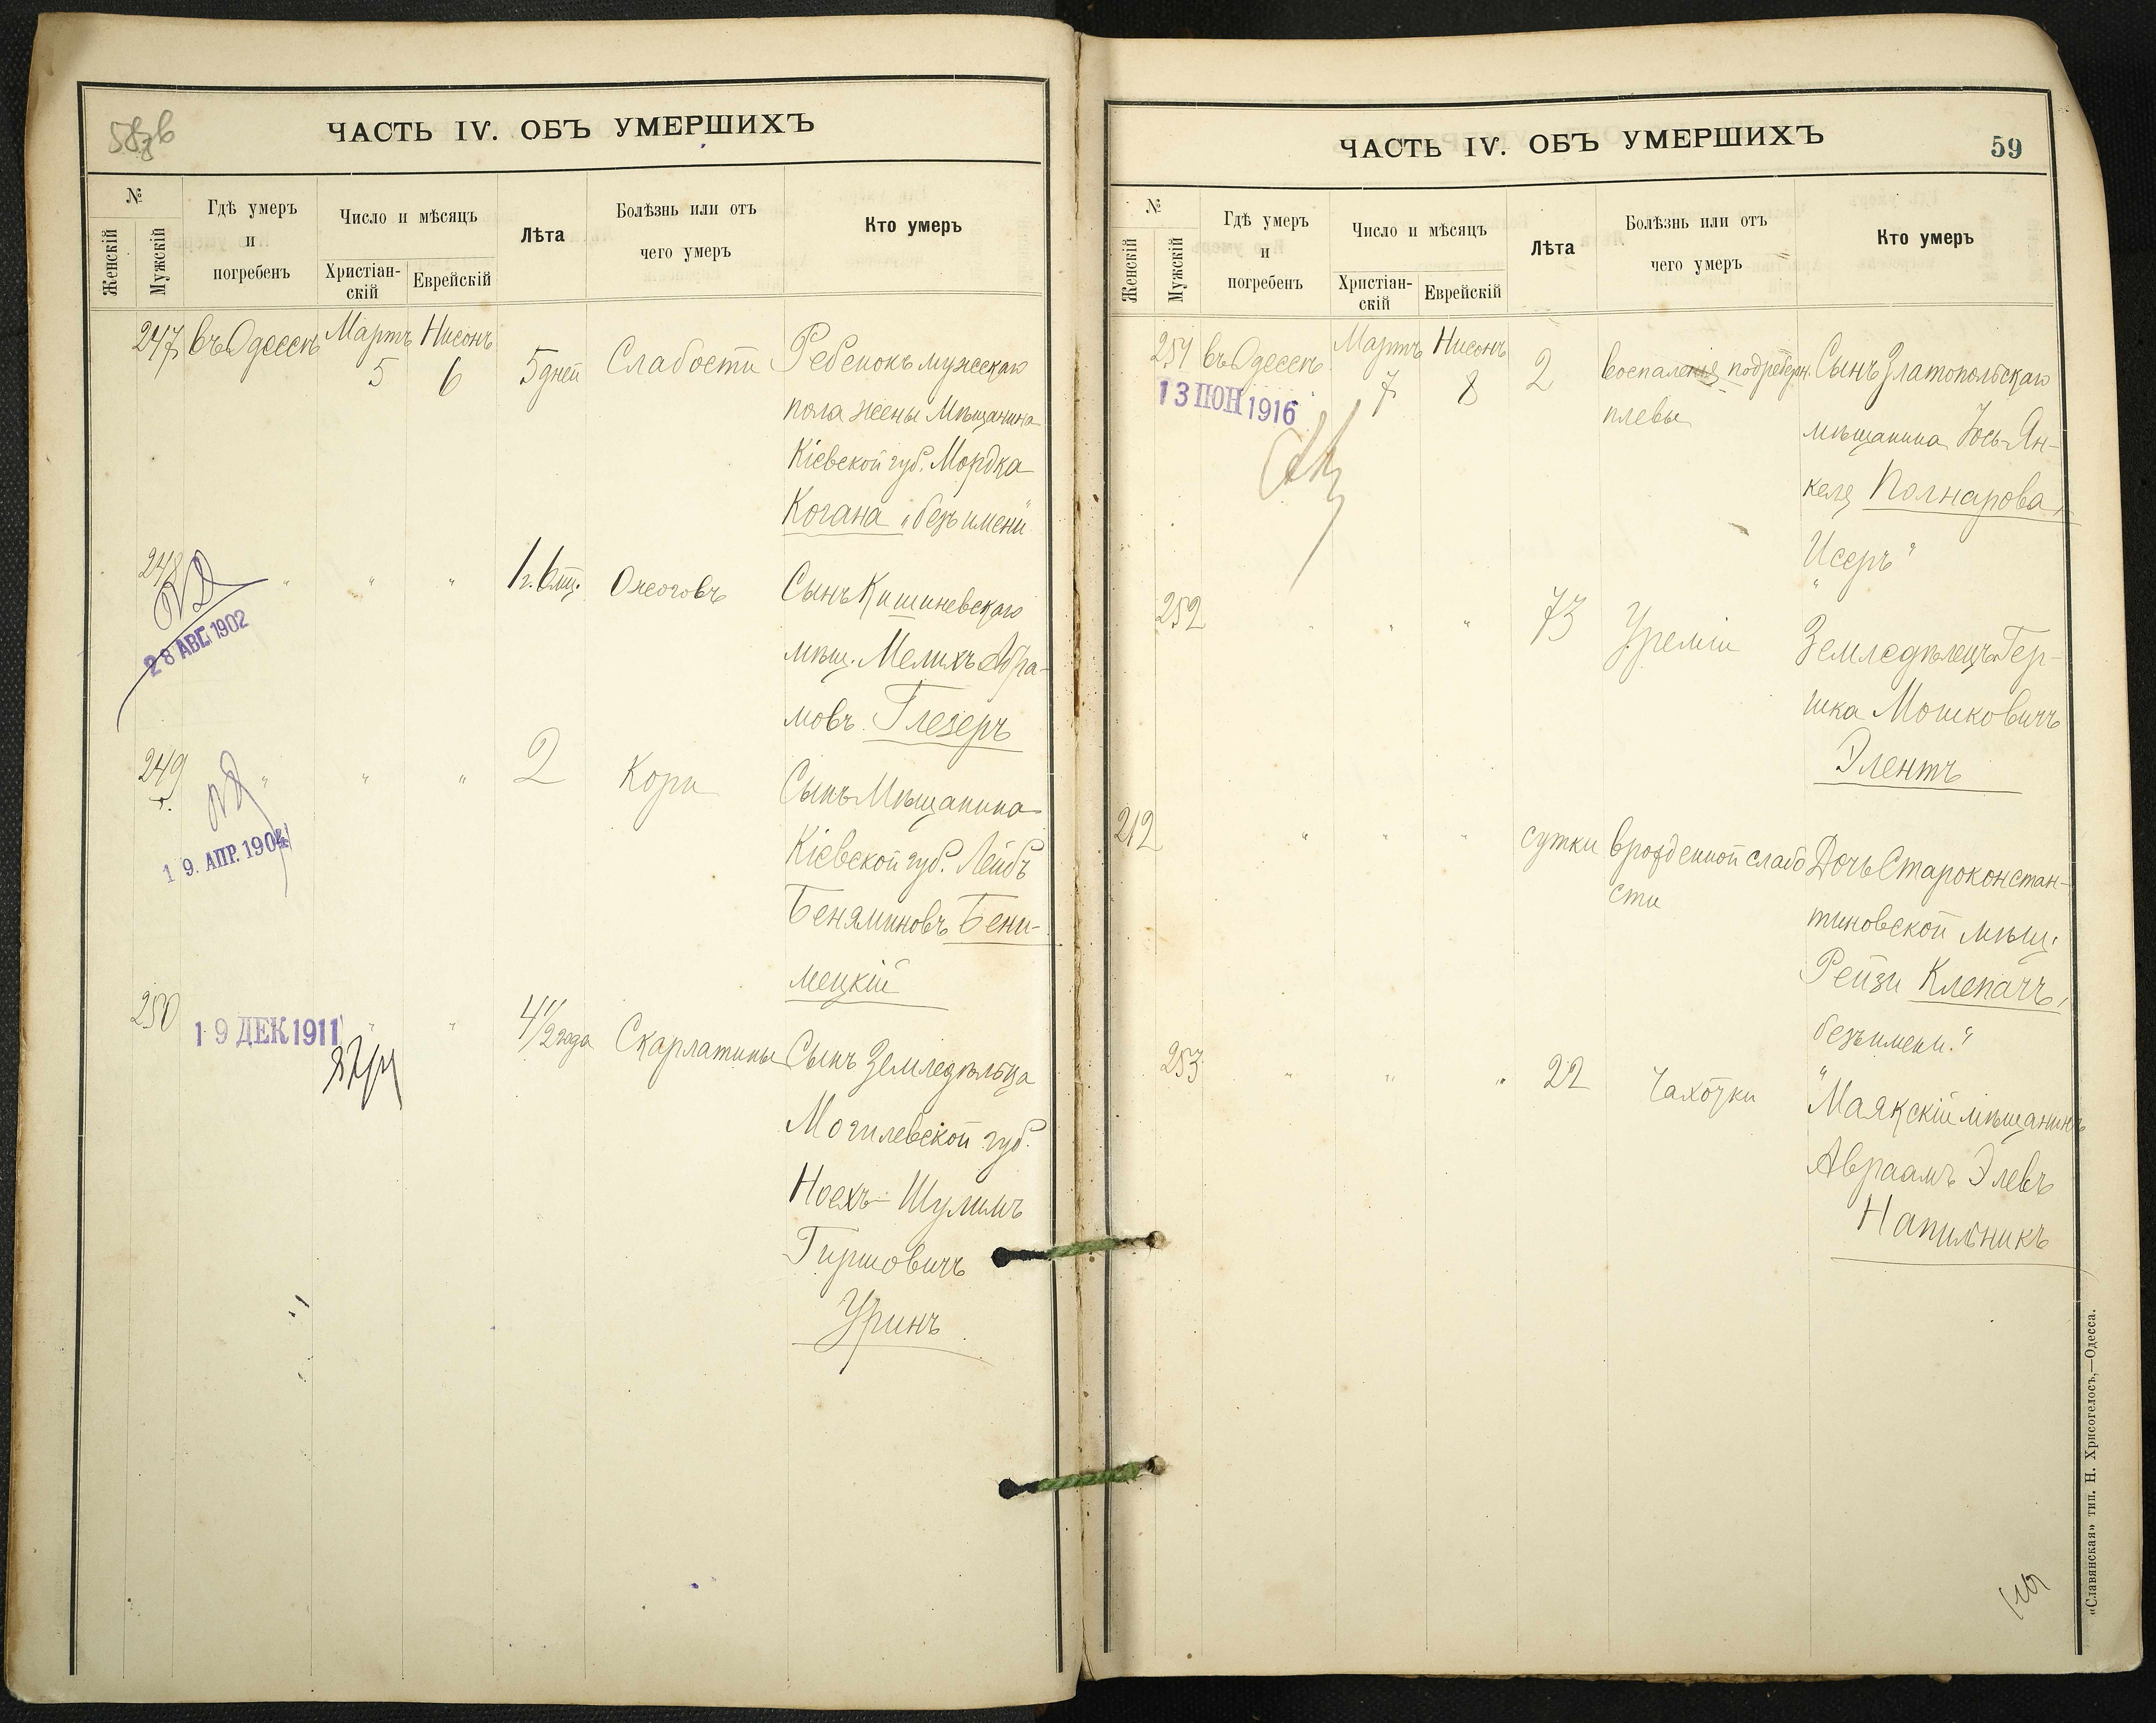 ЧАСТЬ IV. ОБЪ УМЕРШИХЪ
№
Женскій
Мужскій
Гдѣ умеръ
и
погребенъ
Число и мѣсяцъ
Христіан-
скій
Еврейскій
Лѣта
Болѣзнь или отъ
чего умеръ
Кто умеръ
247 въ Одессѣ Мартъ Нисонъ
5 6 5 дней Слабости Ребенокъ мужескаго
пола жены Мѣщанина
Кіевской губ. Мордка
Когана „безъ имени"
248 " " " 1 г. 6 мц. Ожоговъ Сынъ Кишиневскаго
28 АВГ. 1902
мѣщ. Мелихъ Абра-
мовъ Глезеръ
249 " " " 2 Кори Сынъ Мѣщанина
19. АПР. 1904
Кіевской губ. Лейбъ
Беняминовъ Бени-
мецкій
250 " " 4 1/2 года Скарлатины Сынъ Земледѣльца
19 ДЕК 1911
Могилевской губ.
Ноехъ-Шулимъ
Гиршовичъ
Уринъ
ЧАСТЬ IV. ОБЪ УМЕРШИХЪ
59
№
Женскій
Мужскій
Гдѣ умеръ
и
погребенъ
Число и мѣсяцъ
Христіан-
скій
Еврейскій
Лѣта
Болѣзнь или отъ
чего умеръ
Кто умеръ
251 въ Одессѣ Мартъ Нисонъ
7 8 2 воспаленія подреберн. Сынъ Златопольскаго
плевы
13 ІЮН 1916
мѣщанина Іось-Ян-
келя Полнарова,
„Исеръ"
252 " " " 73 Уреміи Земледѣлецъ Гер-
шка Мошковичъ
Элентъ
212 " " " сутки врожденной слабо Дочь Староконстан-
сти
тиновской мѣщ.
Рейзи Клепачъ,
„безъ имени."
253 " " " 22 Чахотки Маякскій мѣщанинъ
Авраамъ Элевъ
Напильникъ
«Славянская» тип. Н. Хрисогелосъ,—Одесса.